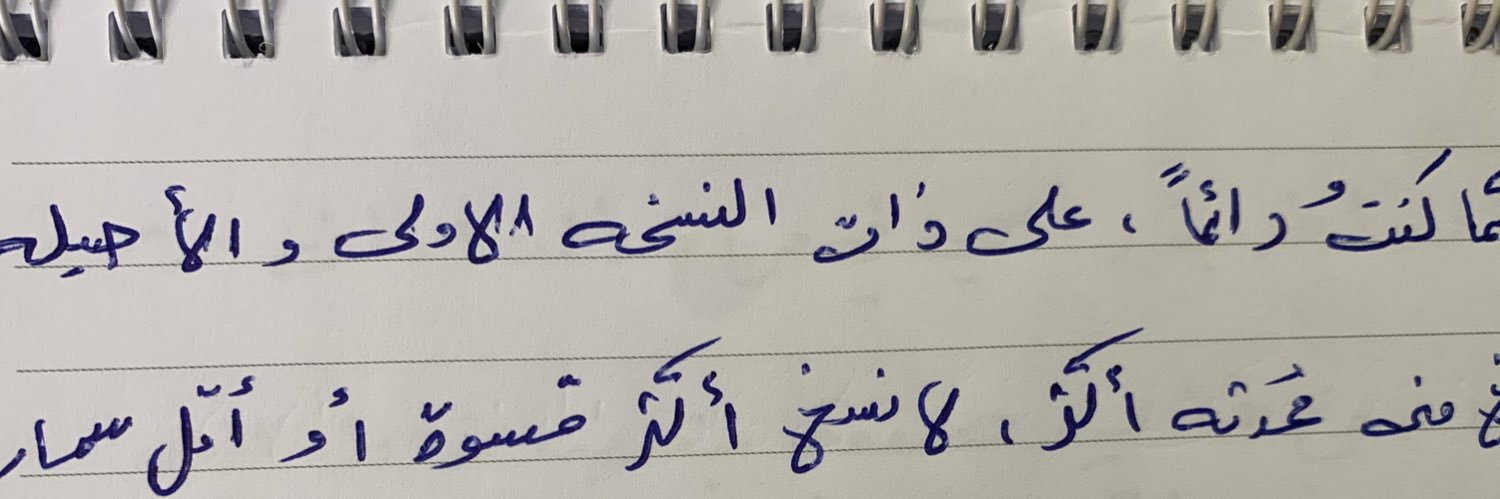 كنتُ دائماً ، على ذات النسخه الاولى و الأصيله
منه محدثه أكثر ، لا نسخ أكثر قسوة أو أقل